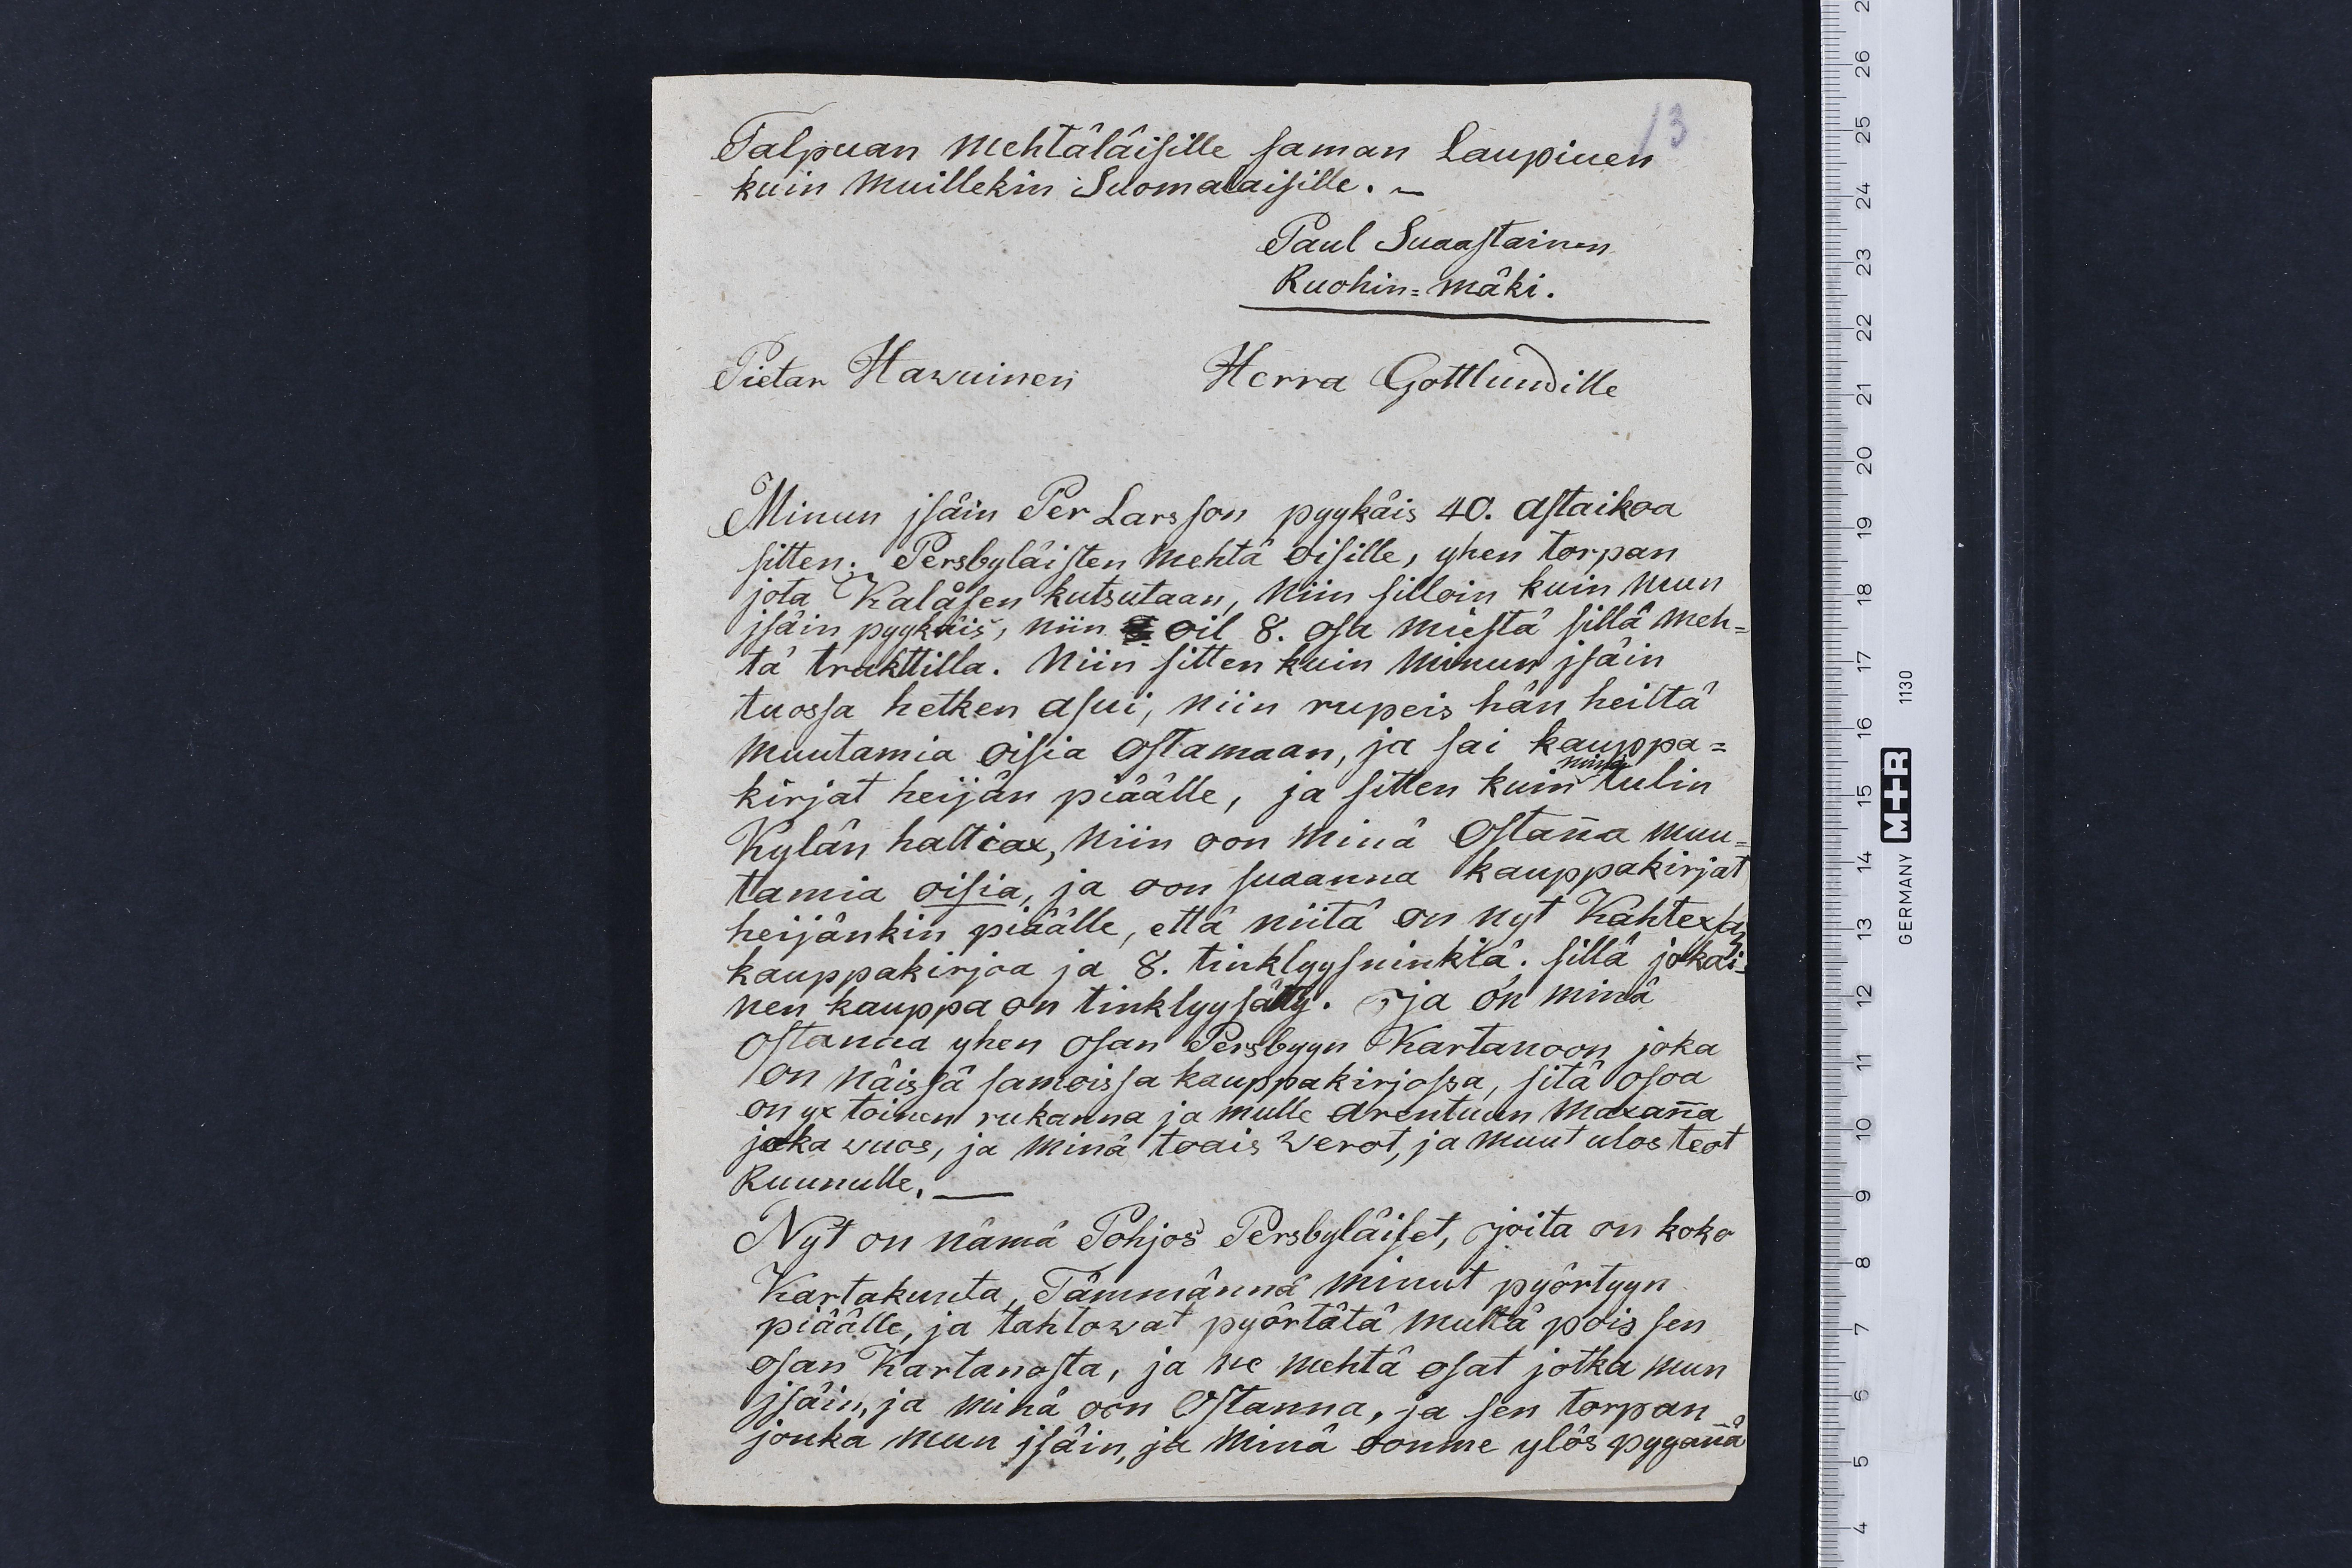 13
Talpuan Mehtäläisille saman Laupiuen
kuin Muillekin Suomalaisille. –
Paul Suaastainen
Ruohin=mäki.
Pietar Hawuinen Herra Gottlundille
Minun jsäin Per Larsson pyykäis 40. astaikoa
sitten. Persbyläisten Mehtä oisille, yhen torpan
jota Kalåsen kutsutaan, Niin silloin kuin Mun
jsäin pyykäis, niin oil 8. osa Miestä sillä Meh=
tä trakttilla. Niin sitten kuin Minun jsäin
tuossa hetken asui, Niin rupeis hän heiltä
Muutamia oisia ostamaan, ja sai kauppa=
kirjat heijän piäälle, ja sitten kuin minä tulin
Kylän haltiax, Niin oon Minä Ostan̄a Muu=
tamia oisia, ja oon suaanna kauppakirjat
heijänkin piäälle, että niitä on Nyt Kahtexan
kauppakirjoa ja 8. tinklyysninkiä. sillä jokai=
nen kauppa on tinklyysätty. ja on Minä
ostanna yhen osan Persbyyn Kartanoon joka
on Näissä samoissa kauppakirjossa, sitä osoa
on yx toinen rukanna ja Mulle arentuun Maxan̄a
joka wuos, ja Minä toais Werot, ja Muut ulos teot
Ruunulle. —
Nyt on Nämä Pohjos Persbyläiset, joita on koko
Kartakunta, Tämmännä Minut pyörtyyn
piäälle, ja tahtowat pyörtätä Multä pois sen
osan Kartanosta, ja ne Mehtä osat jotka Mun
jsäin, ja Minä oon Ostanna, ja sen torpan
jonka Mun jsäin, ja Minä oonme ylös pyyan̄ä
M+R
GERMANY 1130
26
25
24
23
22
21
20
19
18
17
16
15
14
13
12
11
10
9
8
7
6
5
4